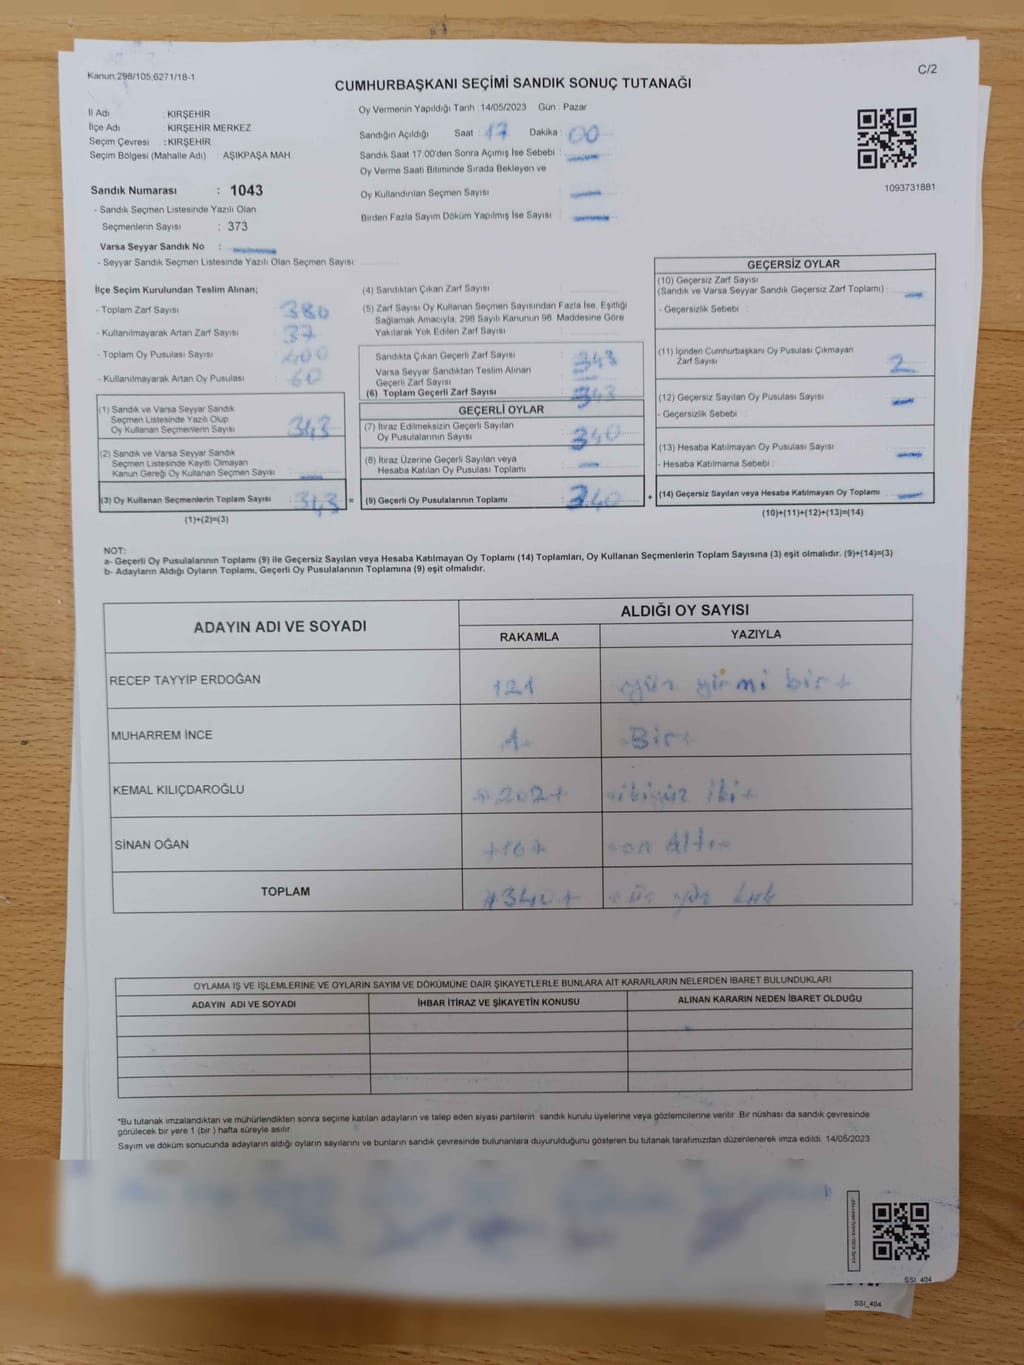 Kanun:298/105,6271/18-1
C/2
CUMHURBAŞKANI SEÇİMİ SANDIK SONUÇ TUTANAĞI
İl Adı : KIRŞEHİR
İlçe Adı : KIRŞEHİR MERKEZ
Seçim Çevresi : KIRŞEHİR
Seçim Bölgesi (Mahalle Adı) : AŞIKPAŞA MAH.
Sandık Numarası : 1043
- Sandık Seçmen Listesinde Yazılı Olan
Seçmenlerin Sayısı : 373
Varsa Seyyar Sandık No :
- Seyyar Sandık Seçmen Listesinde Yazılı Olan Seçmen Sayısı:
Oy Vermenin Yapıldığı Tarih : 14/05/2023 Gün : Pazar
Sandığın Açıldığı Saat : 17 Dakika : 00
Sandık Saat 17.00'den Sonra Açımış İse Sebebi :
Oy Verme Saati Bitiminde Sırada Bekleyen ve
Oy Kullandırılan Seçmen Sayısı
Birden Fazla Sayım Döküm Yapılmış İse Sayısı :
1093731881
İlçe Seçim Kurulundan Teslim Alınan;
- Toplam Zarf Sayısı : 380
- Kullanılmayarak Artan Zarf Sayısı : 37
- Toplam Oy Pusulası Sayısı : 400
- Kullanılmayarak Artan Oy Pusulası : 60
(1) Sandık ve Varsa Seyyar Sandık
Seçmen Listesinde Yazılı Olup
Oy Kullanan Seçmenlerin Sayısı : 343
(2) Sandık ve Varsa Seyyar Sandık
Seçmen Listesinde Kayıtlı Olmayan
Kanun Gereği Oy Kullanan Seçmen Sayısı
(3) Oy Kullanan Seçmenlerin Toplam Sayısı : 343 =
(1)+(2)=(3)
(4) Sandıktan Çıkan Zarf Sayısı :
(5) Zarf Sayısı Oy Kullanan Seçmen Sayısından Fazla İse, Eşitliği
Sağlamak Amacıyla, 298 Sayılı Kanunun 98. Maddesine Göre
Yakılarak Yok Edilen Zarf Sayısı
Sandıkta Çıkan Geçerli Zarf Sayısı : 343
Varsa Seyyar Sandıktan Teslim Alınan
Geçerli Zarf Sayısı
(6) Toplam Geçerli Zarf Sayısı : 343
GEÇERLİ OYLAR
(7) İtiraz Edilmeksizin Geçerli Sayılan
Oy Pusulalarının Sayısı : 340
(8) İtiraz Üzerine Geçerli Sayılan veya
Hesaba Katılan Oy Pusulası Toplamı
(9) Geçerli Oy Pusulalarının Toplamı : 340 +
GEÇERSİZ OYLAR
(10) Geçersiz Zarf Sayısı
(Sandık ve Varsa Seyyar Sandık Geçersiz Zarf Toplamı) :
- Geçersizlik Sebebi :
(11) İçinden Cumhurbaşkanı Oy Pusulası Çıkmayan
Zarf Sayısı : 2
(12) Geçersiz Sayılan Oy Pusulası Sayısı :
- Geçersizlik Sebebi :
(13) Hesaba Katılmayan Oy Pusulası Sayısı :
- Hesaba Katılmama Sebebi :
(14) Geçersiz Sayılan veya Hesaba Katılmayan Oy Toplamı :
(10)+(11)+(12)+(13)=(14)
NOT:
a- Geçerli Oy Pusulalarının Toplamı (9) ile Geçersiz Sayılan veya Hesaba Katılmayan Oy Toplamı (14) Toplamları, Oy Kullanan Seçmenlerin Toplam Sayısına (3) eşit olmalıdır. (9)+(14)=(3)
b- Adayların Aldığı Oyların Toplamı, Geçerli Oy Pusulalarının Toplamına (9) eşit olmalıdır.
ADAYIN ADI VE SOYADI ALDIĞI OY SAYISI
RAKAMLA YAZIYLA
RECEP TAYYİP ERDOĞAN 121 yüz yirmi bir
MUHARREM İNCE 1 Bir
KEMAL KILIÇDAROĞLU 202 ikiyüz iki
SİNAN OĞAN 16 on Altı
TOPLAM 340 üç yüz kırk
OYLAMA İŞ VE İŞLEMLERİNE VE OYLARIN SAYIM VE DÖKÜMÜNE DAİR ŞİKAYETLERLE BUNLARA AİT KARARLARIN NELERDEN İBARET BULUNDUKLARI
ADAYIN ADI VE SOYADI İHBAR İTİRAZ VE ŞİKAYETİN KONUSU ALINAN KARARIN NEDEN İBARET OLDUĞU
*Bu tutanak imzalandıktan ve mühürlendikten sonra seçime katılan adayların ve talep eden siyasi partilerin sandık kurulu üyelerine veya gözlemcilerine verilir. Bir nüshası da sandık çevresinde
görülecek bir yere 1 (bir ) hafta süreyle asılır.
Sayım ve döküm sonucunda adayların aldığı oyların sayılarını ve bunların sandık çevresinde bulunanlara duyurulduğunu gösteren bu tutanak tarafımızdan düzenlenerek imza edildi. 14/05/2023
SSI_404
SSI_404